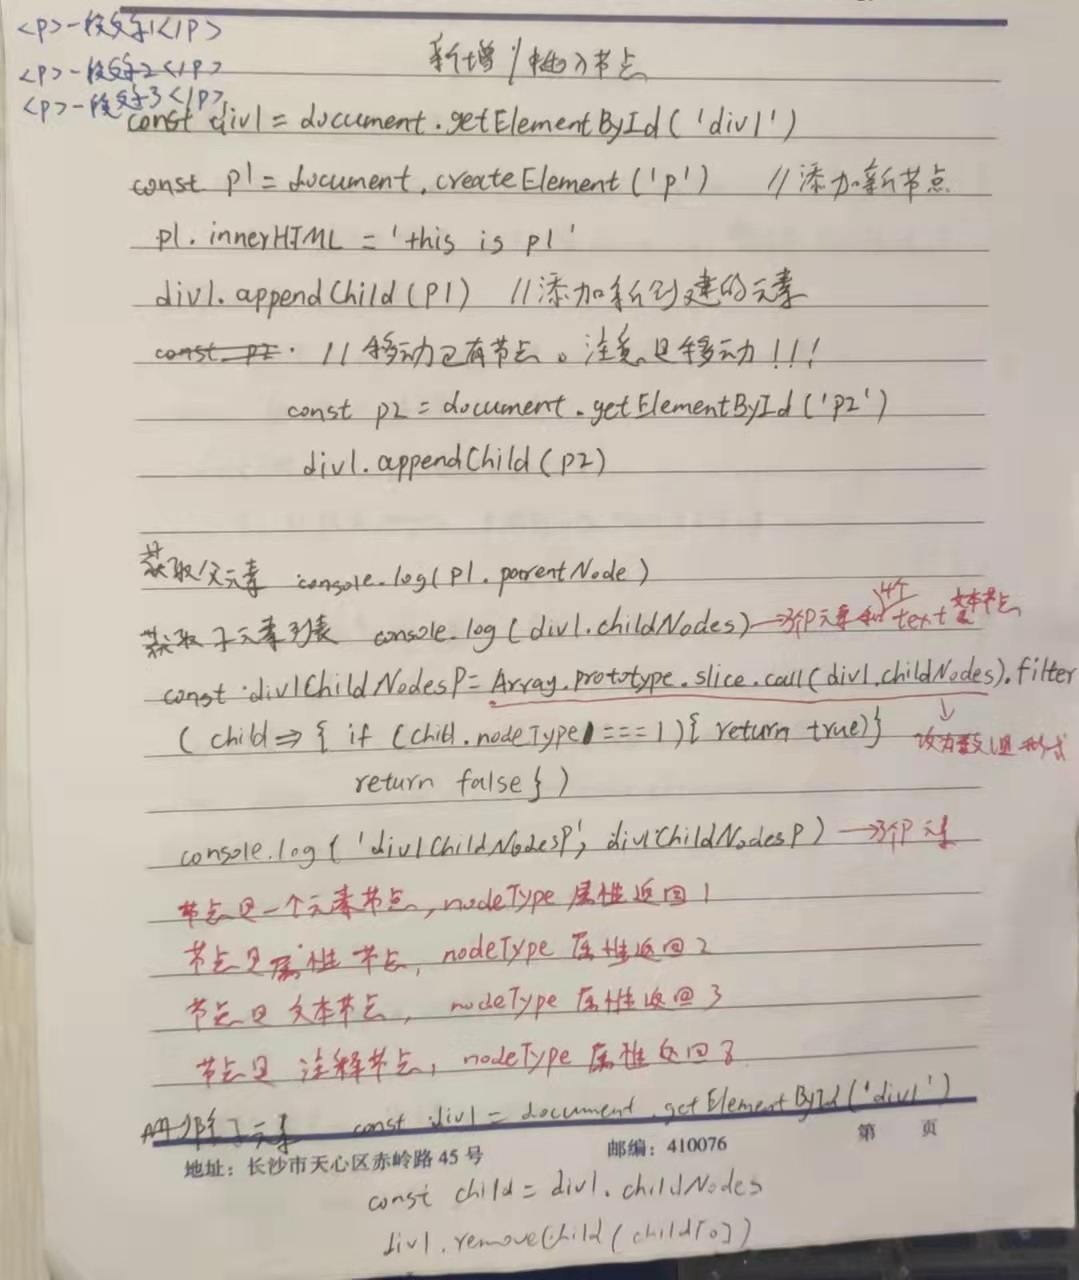 <p>一段文字1</p>
<p>一段文字2</p>
<p>一段文字3</p>
新增/插入节点
const div1 = document.getElementById('div1')
const p1 = document.createElement('p') //添加新节点
p1.innerHTML = 'this is p1'
div1.appendChild(p1) //添加新创建的元素
const p2. //移动已有节点。注意是移动!!!
const p2 = document.getElementById('p2')
div1.appendChild(p2)
获取父元素 console.log(p1.parentNode)
获取子元素列表 console.log(div1.childNodes) →3个P元素和4个text文本节点
const div1ChildNodesP = Array.prototype.slice.call(div1.childNodes).filter
(child => { if (child.nodeType === 1){ return true)} 改为数组形式
return false})
console.log('div1ChildNodesP', div1ChildNodesP) →3个P元素
节点是一个元素节点,nodeType 属性返回1
节点是属性节点,nodeType 属性返回2
节点是文本节点,nodeType 属性返回3
节点是注释节点,nodeType 属性返回8
删除子元素 const div1 = document.getElementById('div1')
地址：长沙市天心区赤岭路45号 邮编：410076 第 页
const child = div1.childNodes
div1.removeChild(child[0])